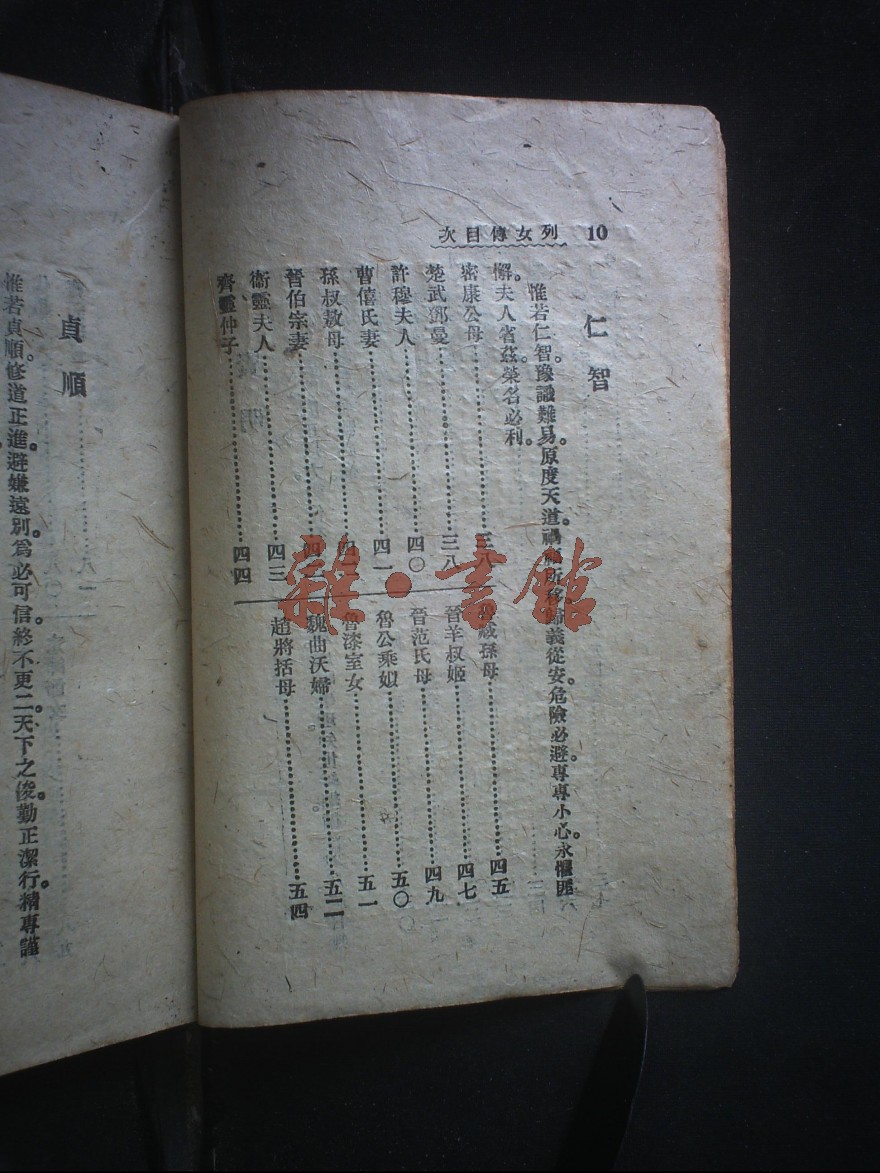 列女傳目次 10
仁智
惟若仁智。豫識難易。原度天道。禍福所移。歸義從安。危險必避。專專小心。永懼匪
懈。夫人省茲。榮名必利。
密康公母 三八
楚武鄧曼 三八
許穆夫人 四〇
曹僖氏妻 四一
孫叔敖母
晉伯宗妻
衞靈夫人 四三
齊靈仲子 四四
臧孫母 四五
晉羊叔姬 四七
晉范氏母 四九
魯公乘姒 五〇
魯漆室女 五一
魏曲沃婦 五二
趙將括母 五四
貞順
惟若貞順。修道正進。避嫌遠別。爲必可信。終不更二。天下之俊。勤正潔行。精專謹
雜·書館